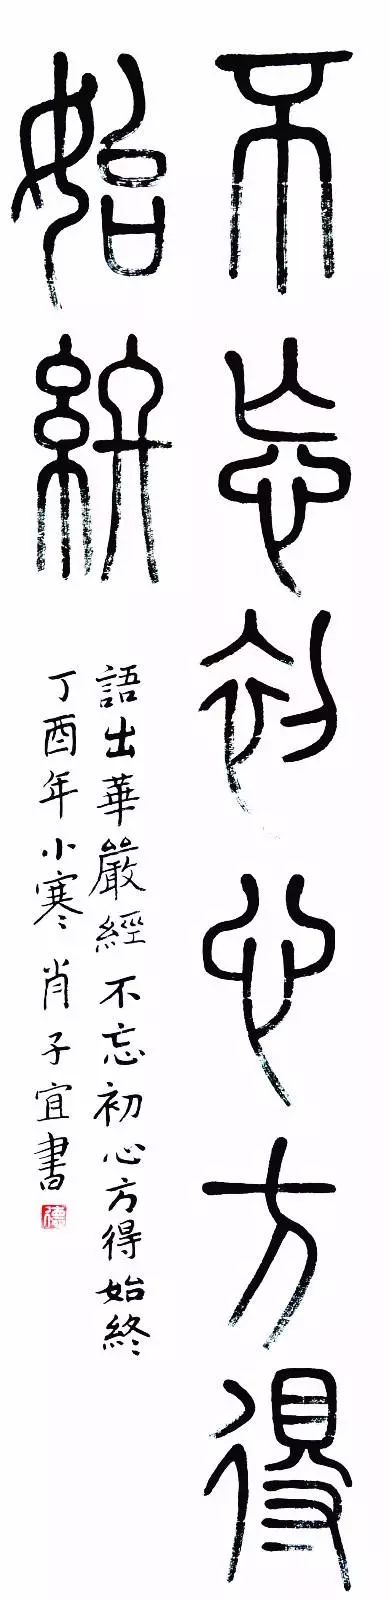 不忘初心方得
始終
語出華嚴經不忘初心方得始終
丁酉年小寒肖子宜書